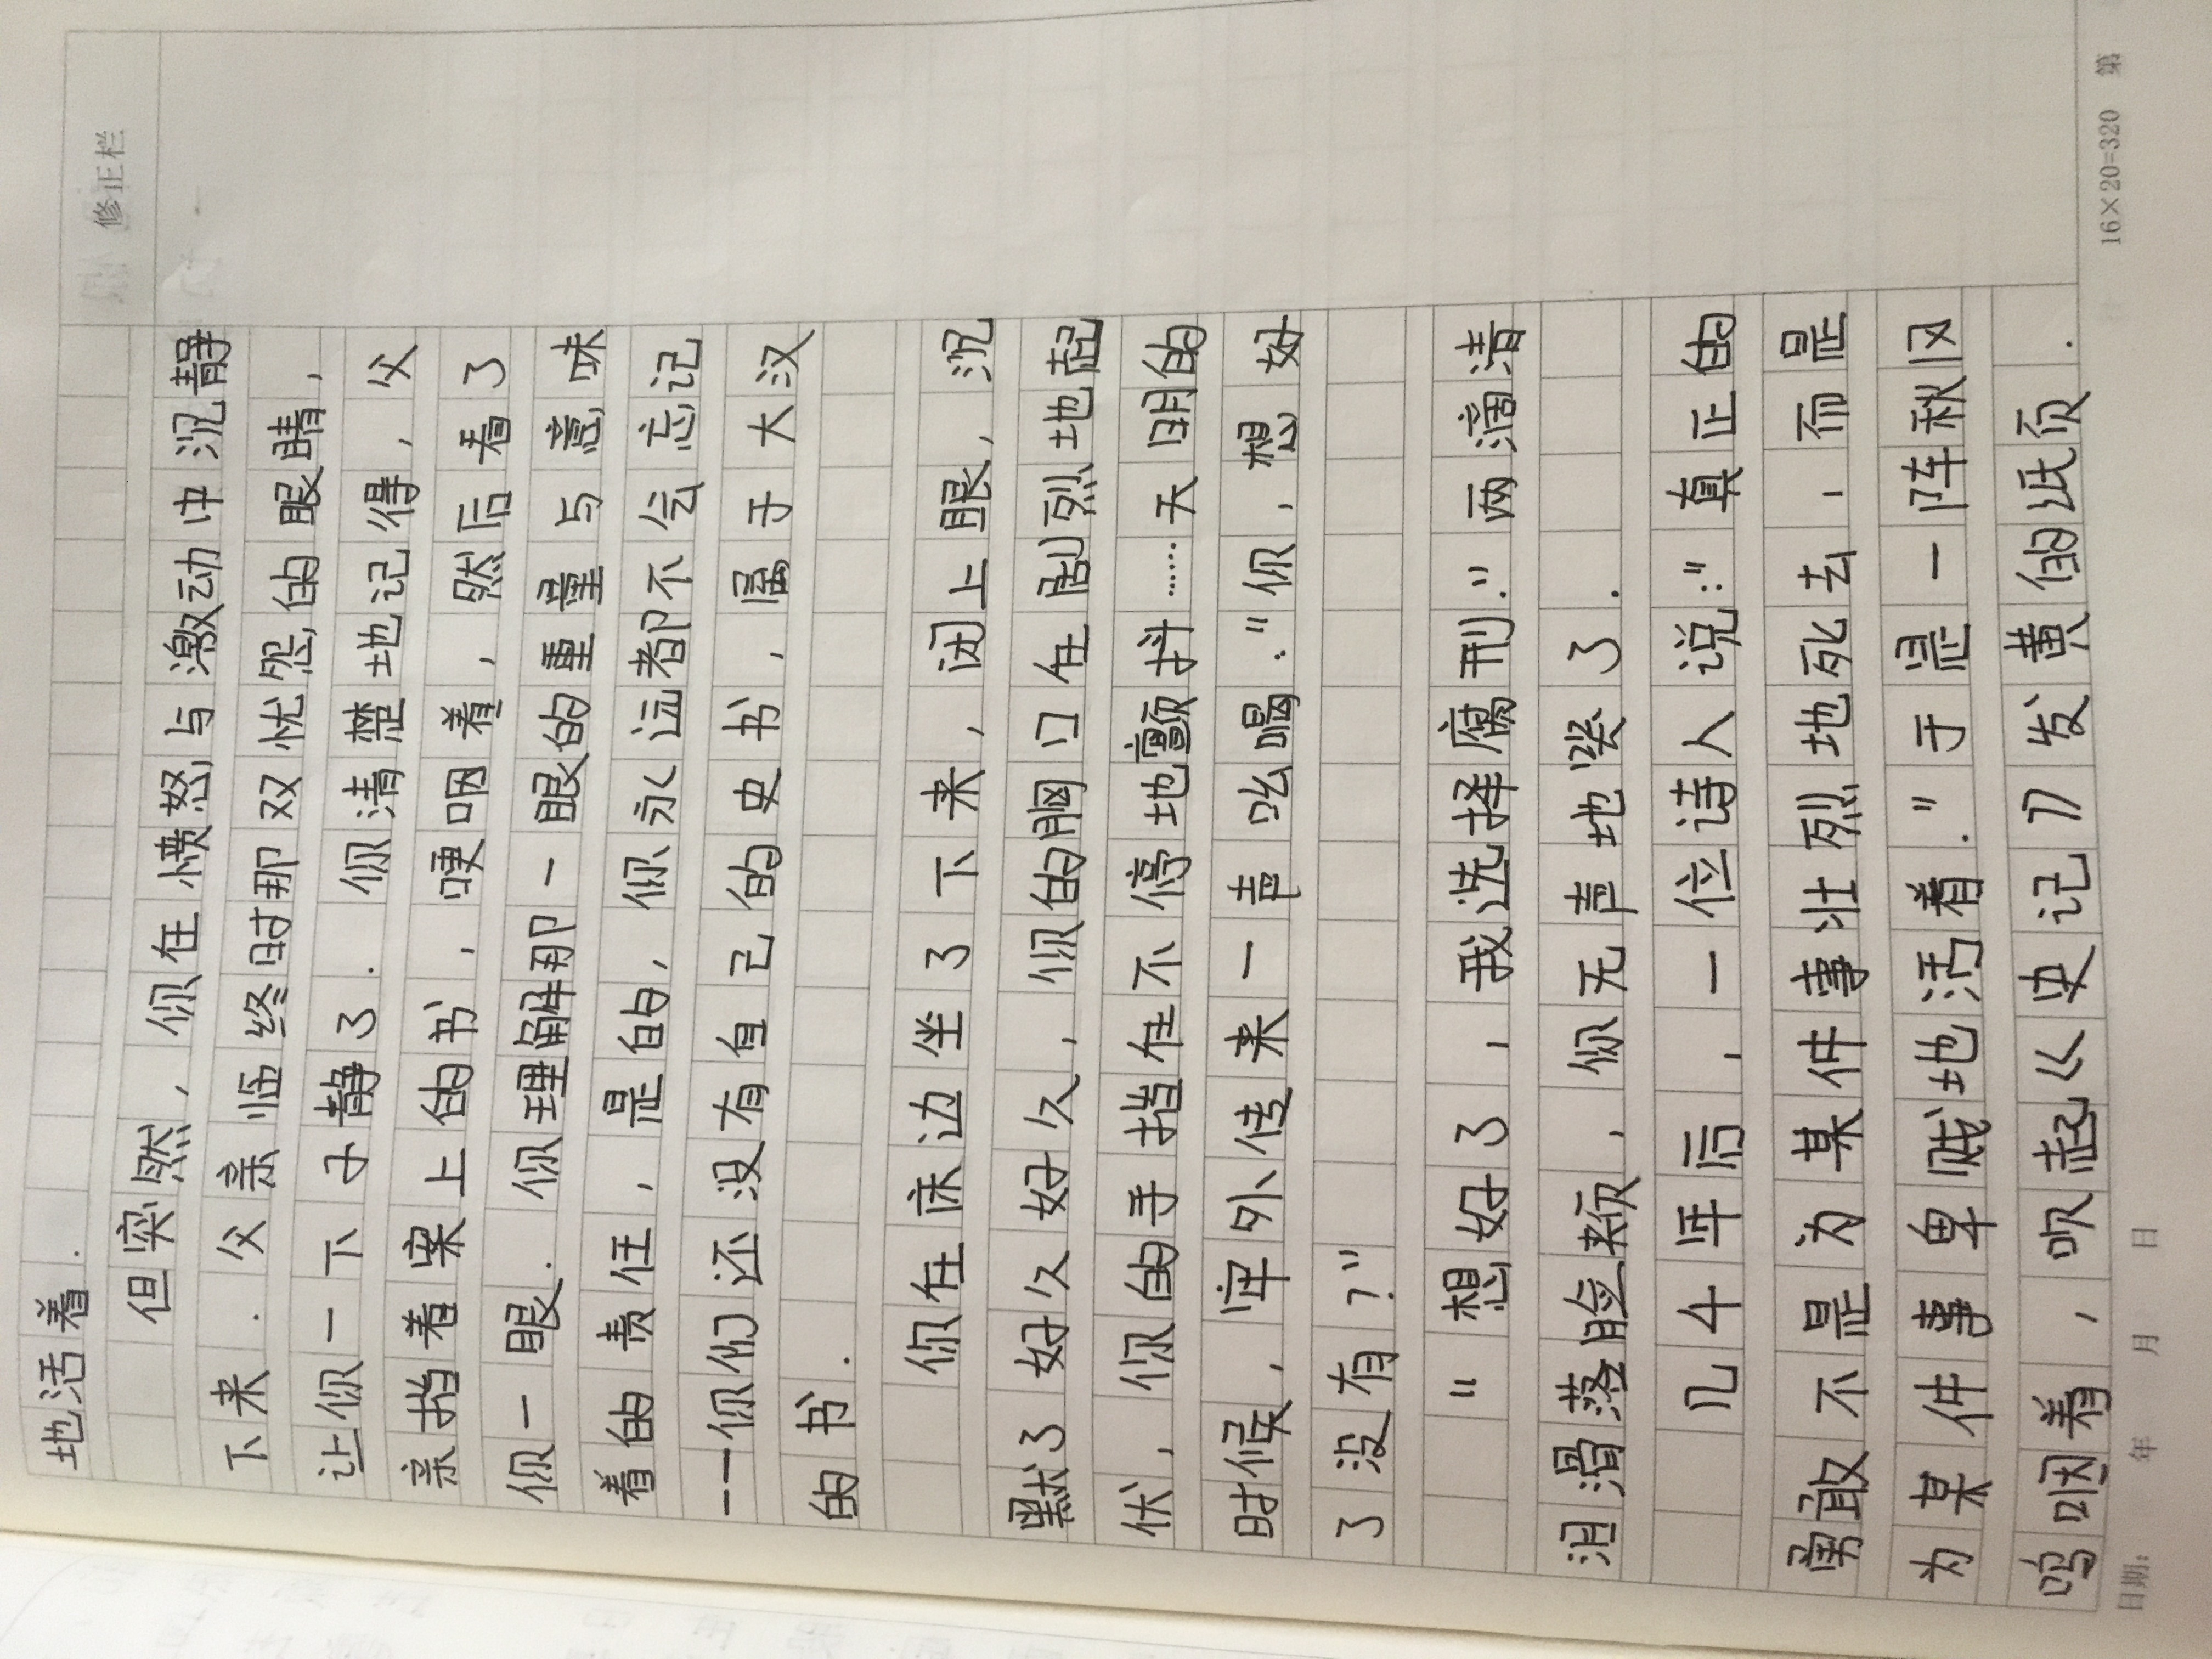 修正栏
地活着.
但突然,你在愤怒与激动中沉静
下来.父亲临终时那双忧怨的眼睛,
让你一下子静了.你清楚地记得,父
亲指着案上的书,哽咽着,然后看了
你一眼.你理解那一眼的重量与意味
着的责任,是的,你永远都不会忘记
——你们还没有自己的史书,属于大汉
的书.
你在床边坐了下来,闭上眼,沉
默了好久好久,你的胸口在剧烈地起
伏,你的手指在不停地颤抖……天明的
时候,牢外传来一声吆喝:"你,想好
了没有?"
"想好了,我选择腐刑."两滴清
泪滑落脸颊,你无声地哭了.
几千年后,一位诗人说:"真正的
勇敢不是为某件事壮烈地死去,而是
为某件事卑贱地活着."于是一阵秋风
呜咽着,吹起《史记》发黄的纸页.
日期: 年 月 日 16×20=320 第